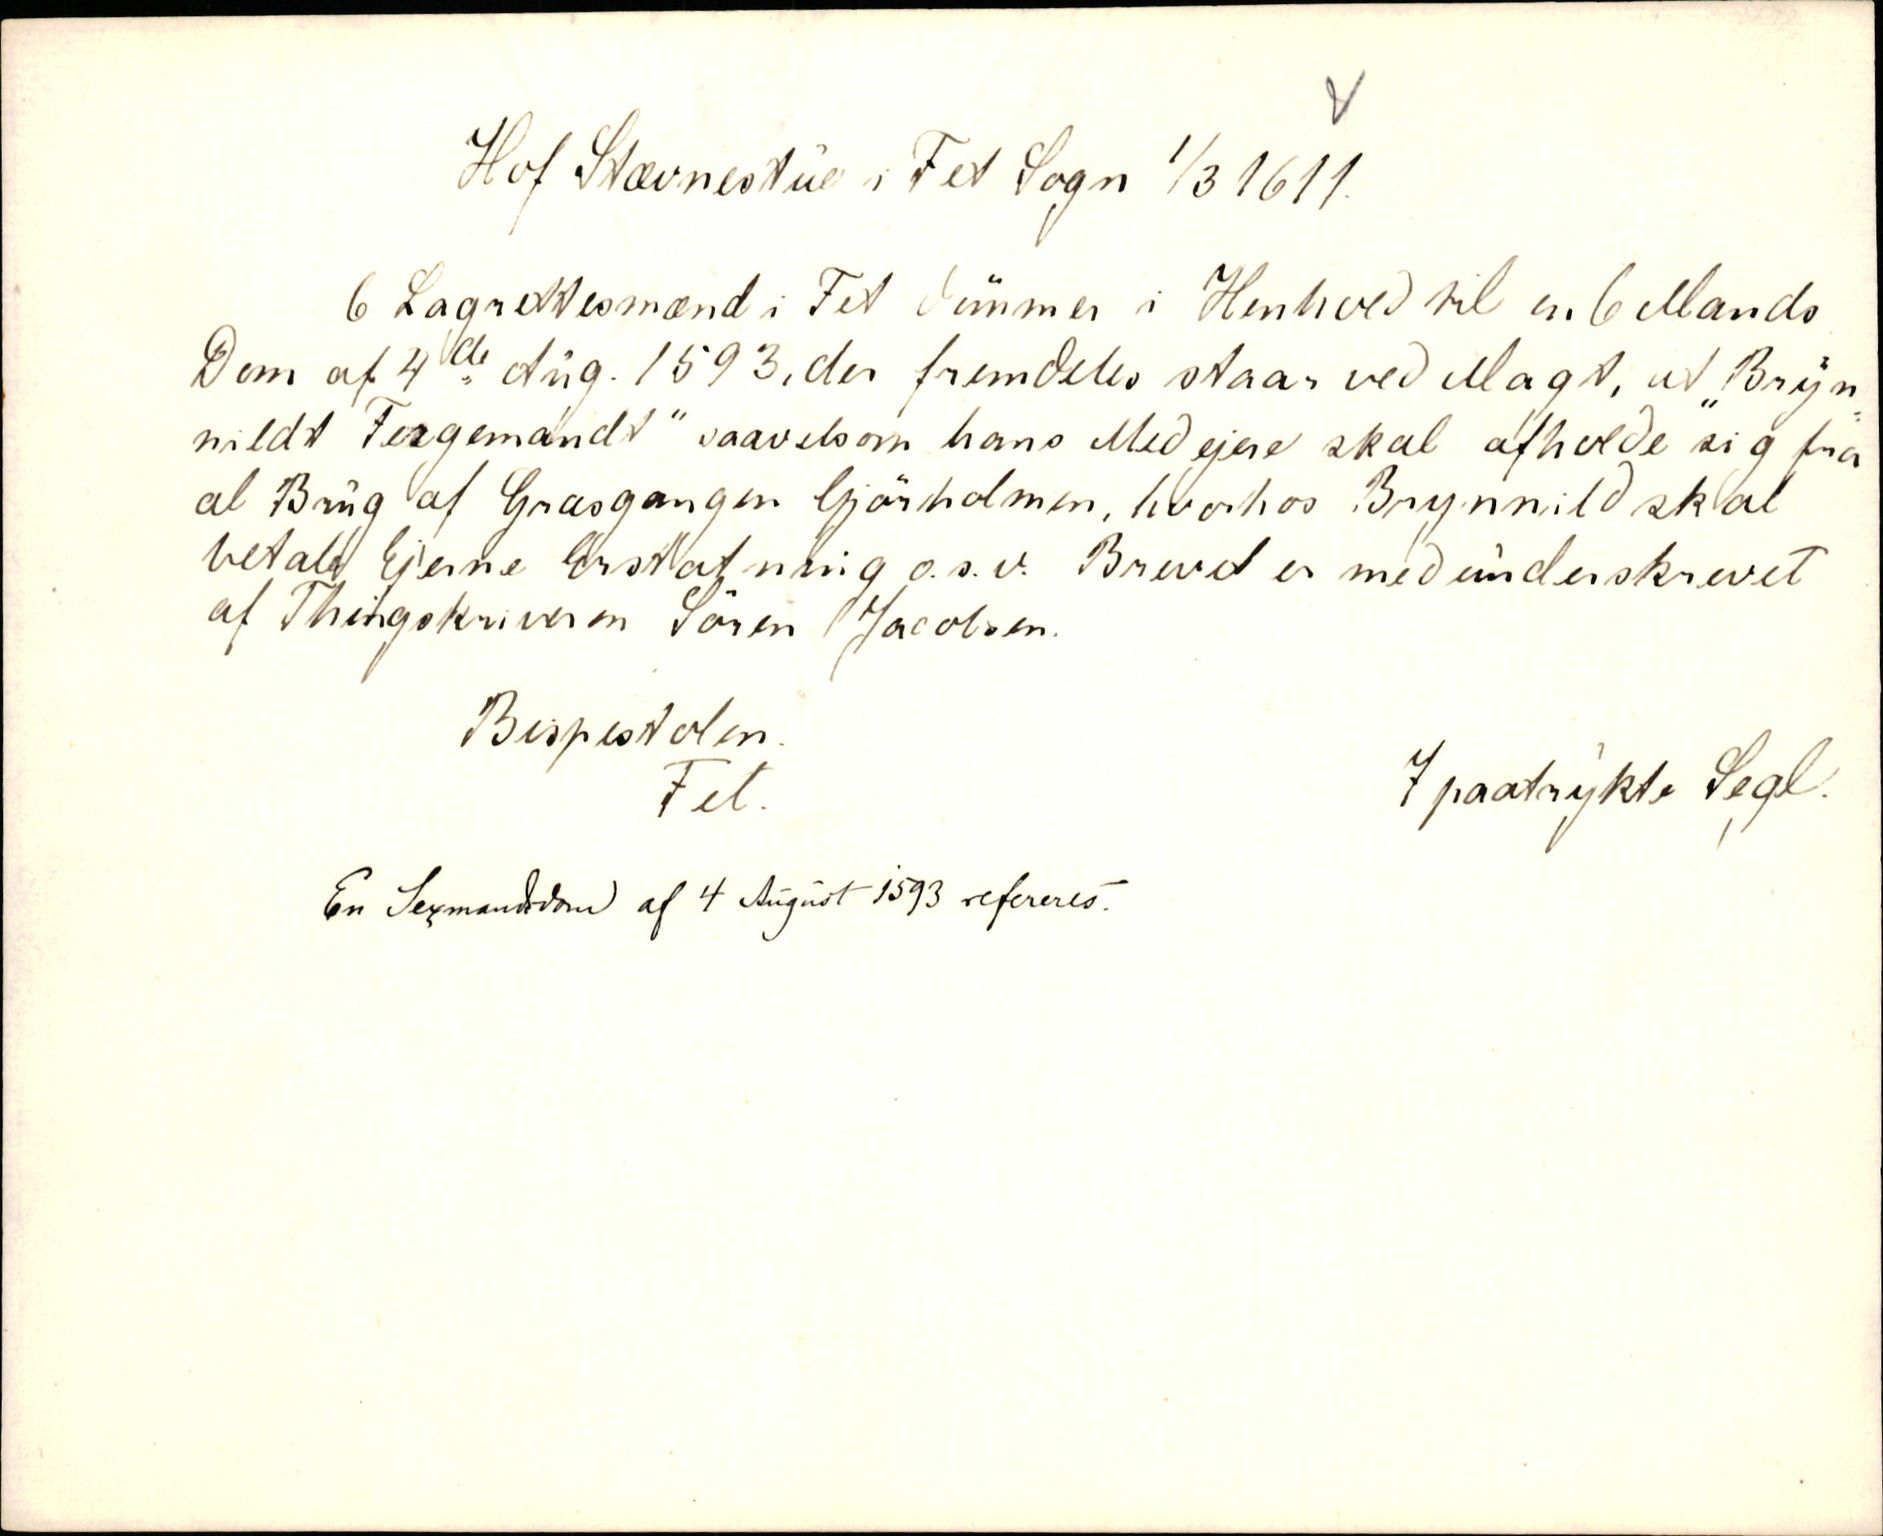 Hof Stævnestue i Fet Sogn 1/3 1611.
6 Lagrettesmænd i Fet dømmer i Henhold til en 6 Mands
Dom af 4de Aug. 1593, der fremdeles staar ved Magt, at „Bryn-
nildt Fergemandt“ saavelsom hans Medejere skal afholde sig fra
al Brug af Græsgangen Gjörholmen, hvorhos Brynnild skal
betale Ejerne Erstatning o.s.v. Brevet er medunderskrevet
af Thingskriveren Sören Jacobsen.
Bispestolen.
Fet.
7 paatrykte Segl.
En Sexmandsdom af 4 August 1593 refereres.